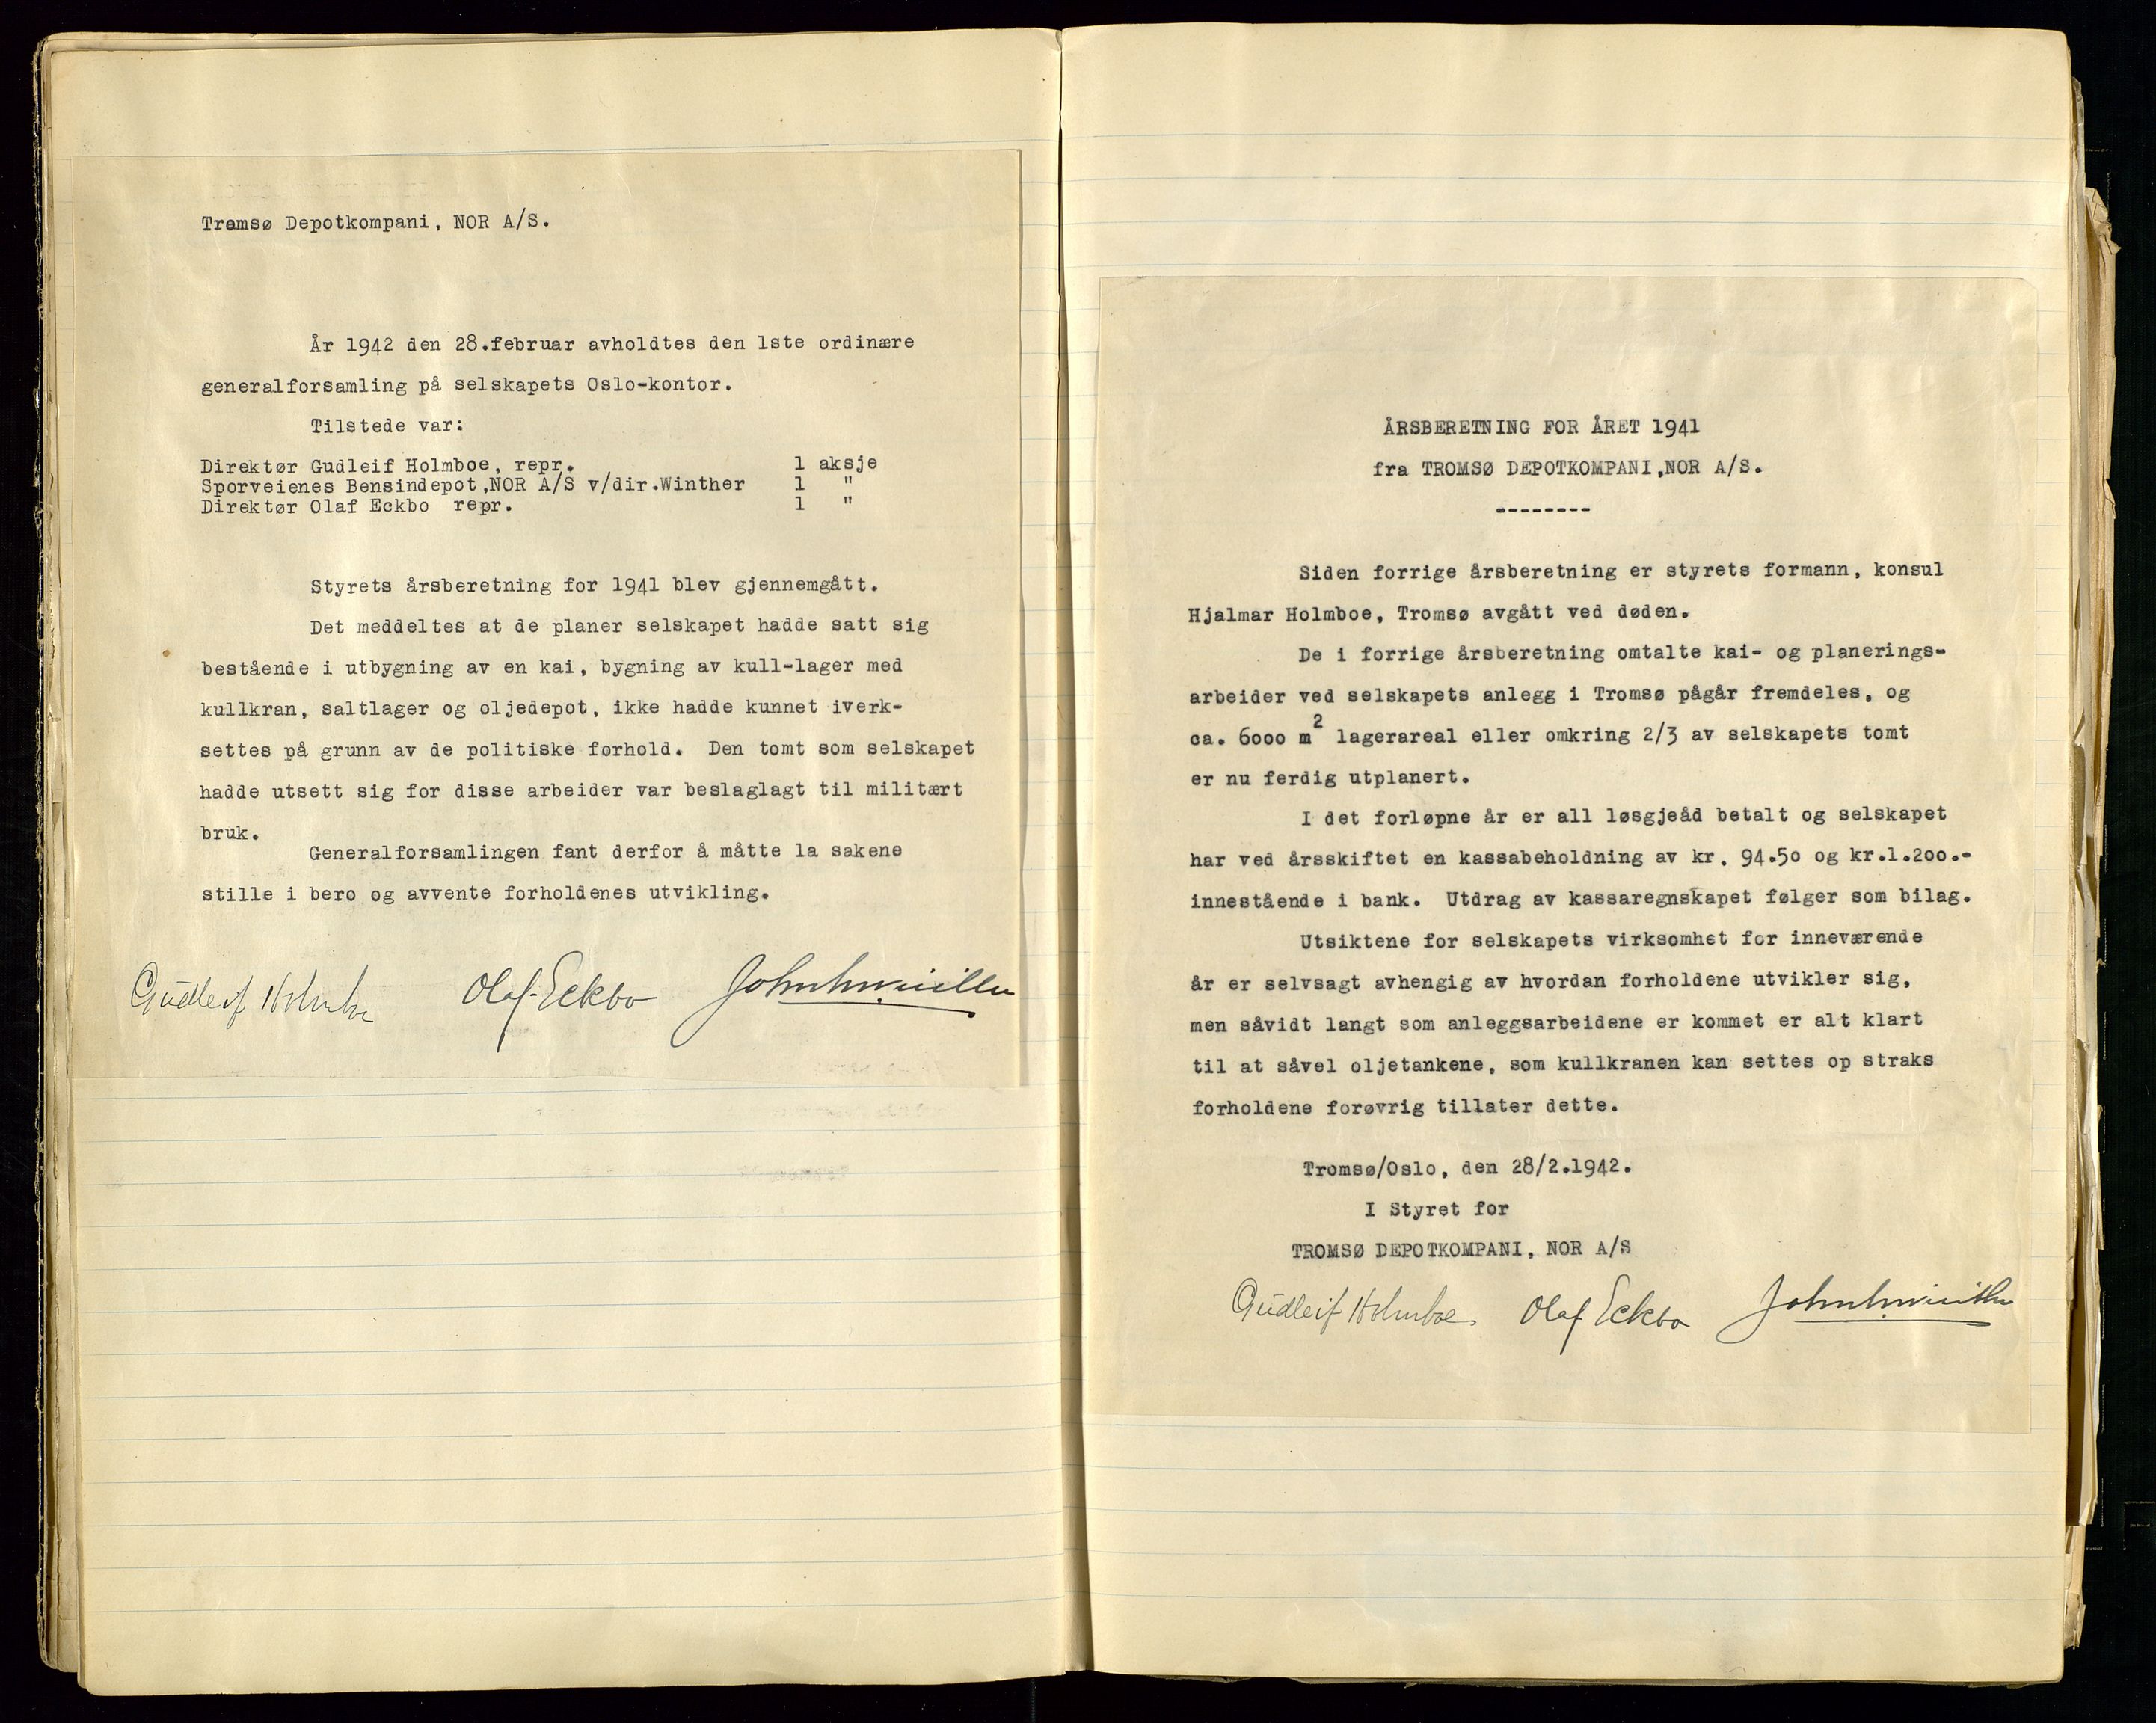 Tromsø Depotkompani, NOR A/S.
År 1942 den 28.februar avholdtes den 1ste ordinære
generalforsamling på selskapets Oslo-kontor.
Tilstede var:
Direktør Gudleif Holmboe, repr. 1 aksje
Sporveienes Bensindepot,NOR A/S v/dir.Winther 1 "
Direktør Olaf Eckbo repr. 1 "
Styrets årsberetning for 1941 blev gjennemgått.
Det meddeltes at de planer selskapet hadde satt sig
bestående i utbygning av en kai, bygning av kull-lager med
kullkran, saltlager og oljedepot, ikke hadde kunnet iverk-
settes på grunn av de politiske forhold. Den tomt som selskapet
hadde utsett sig for disse arbeider var beslaglagt til militært
bruk.
Generalforsamlingen fant derfor å måtte la sakene
stille i bero og avvente forholdenes utvikling.
Gudleif Holmboe Olaf Eckbo
ÅRSBERETNING FOR ÅRET 1941
fra TROMSØ DEPOTKOMPANI,NOR A/S.
--------
Siden forrige årsberetning er styrets formann, konsul
Hjalmar Holmboe, Tromsø avgått ved døden.
De i forrige årsberetning omtalte kai- og planerings-
arbeider ved selskapets anlegg i Tromsø pågår fremdeles, og
ca. 6000 m2 lagerareal eller omkring 2/3 av selskapets tomt
er nu ferdig utplanert.
I det forløpne år er all løsgjeåd betalt og selskapet
har ved årsskiftet en kassabeholdning av kr. 94.50 og kr.1.200.-
innestående i bank. Utdrag av kassaregnskapet følger som bilag.
Utsiktene for selskapets virksomhet for inneværende
år er selvsagt avhengig av hvordan forholdene utvikler sig,
men såvidt langt som anleggsarbeidene er kommet er alt klart
til at såvel oljetankene, som kullkranen kan settes op straks
forholdene forøvrig tillater dette.
Tromsø/Oslo, den 28/2.1942.
I Styret for
TROMSØ DEPOTKOMPANI, NOR A/S
Gudleif Holmboe Olaf Eckbo